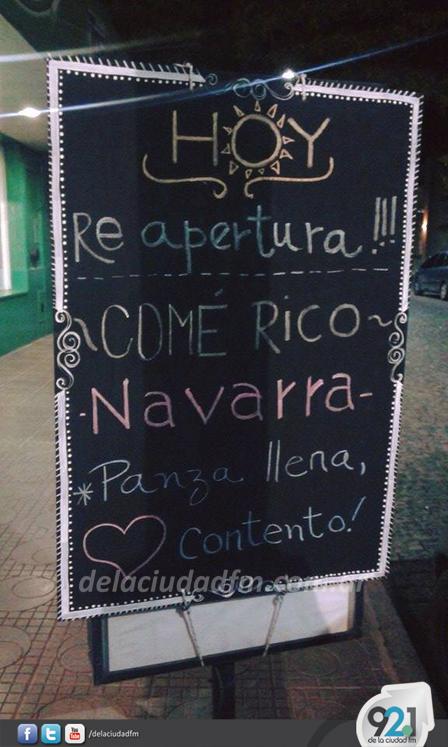 HOY
Re apertura!!!
~COMÉ RICO~
-Navarra-
*Panza llena,
contento!
delaciudadfm.com.ar
f t You Tube /delaciudadfm
92.1
de la ciudad fm